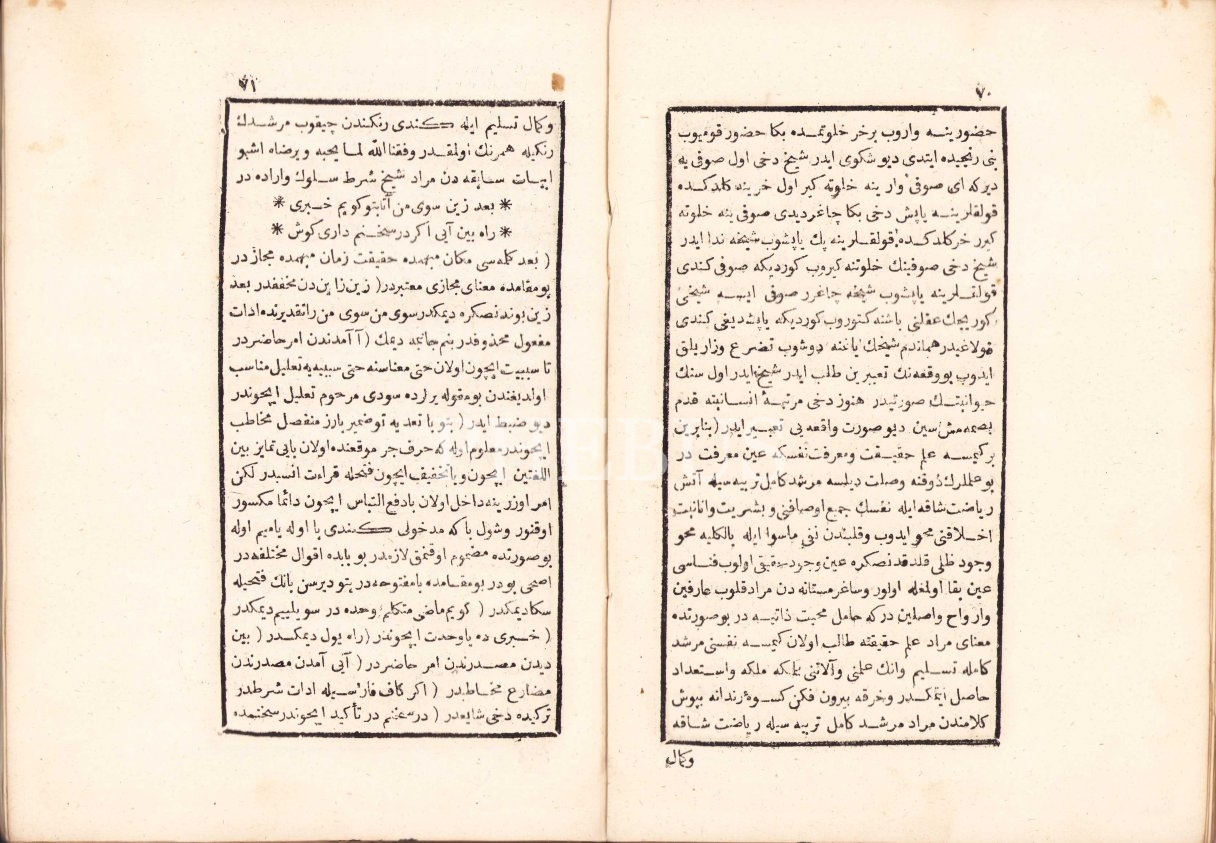 ٧٠
حضورينه واروب برخر خلوتمده بكا حضور قوميوب
بنى رنجيده ايتدى ديو شكوى ايدر شيخ دخى اول صوفى يه
ديركه اى صوفى وار ينه خلوته كير اول خر ينه كلدكده
قولقلرينه ياپش دخى بكا چاغر ديدى صوفى ينه خلوته
كيرر خر كلدكده قولقلرينه پك ياپشوب شيخه ندا ايدر
شيخ دخى صوفينك خلوتنه كيروب كورديكه صوفى كندى
قولقلرينه ياپشوب شيخه چاغرر صوفى ايسه شيخى
كوريجك عقلنى باشنه كتوروب كورديكه ياپشديغى كندى
قولاغيدر هماندم شيخك اياغنه دوشوب تضرع وزاريلق
ايدوب بو وقعه نك تعبيرين طالب ايدر شيخ ايدر اول سنك
حيوانيتك صورتيدر هنوز دخى مرتبۀ انسانيته قدم
بصمه مش سين ديو صورت واقعه يى تعبير ايدر ( بنابرين
بركيمسه علم حقيقت ومعرفت نفسكه عين معرفت در
بو عللرك ذوقنه وصلت ديلسه مرشد كامل تربيه سيله آتش
رياضت شاقه ايله نفسك جميع اوصافنى وبشريت وانانيت
اخلاقنى محو ايدوب وقلبندن نفى ماسوا ايله بالكليه محو
وجود ظلى قلدقدنصكره عين وجود حقيقى اولوب فناسى
عين بقا اولمغله اولور وساغر مستانه دن مراد قلوب عارفين
وارواح واصلين دركه حامل محبت ذاتيه در بو صورتده
معناى مراد علم حقيقته طالب اولان كيمسه نفسنى مرشد
كامله تسليم وانك علمنى وآلاتنى بيلمكه ملكه واستعداد
حاصل ايتمكدر وخرقه بيرون فكن كسوۀ رندانه بپوش
كلامندن مراد مرشد كامل تربيه سيله رياضت شاقه
وكمال
٧١
وكمال تسليم ايله كندى رنكندن چيقوب مرشدك
رنكيله همرنك اولمقدر وفقنا الله لما يحبه ويرضاه اشبو
ابيات سابقه دن مراد شيخ شرط سلوك واراده در
* بعد زين سوى من آتابتو كويم خبرى *
* راه بين آيى اكر در سخنم دارى كوش *
( بعد كله سى مكان مبهمده حقيقت زمان مبهمده مجاز در
بو مقامده معناى مجازى معتبر در ( زين زا ين دن مخففدر بعد
زين بوندنصكره ديمكدر سوى من سوى من را تقديرنده ادات
مفعول محذوفدر بنم جانبمه ديمك ( آ آمدندن امر حاضر در
تا سببيت ايچون اولان حتى معناسنه حتى سببيه يه تعليل مناسب
اولديغندن بو مقوله يرلرده سودى مرحوم تعليل ايچوندر
ديو ضبط ايدر ( بتو با تعديه تو ضمير بارز منفصل مخاطب
ايچوندر معلوم اوله كه حرف جر موقعنده اولان بايى تمايز بين
اللغتين ايچون ويا تخفيف ايچون فتحله قراءت انسبدر لكن
امر اوزرينه داخل اولان با دفع التباس ايچون دائما مكسور
اوقنور وشول با كه مدخولى كندى با اوله ياميم اوله
بو صورتده مضموم اوقنمق لازمدر بو بابده اقوال مختلفه در
اصحى بودر بو مقامده با مفتوحه در بتو ديرسن بانك فتحيله
سكا ديمكدر ( كويم ماضى متكلم وحده در سويليم ديمكدر
( خبرى ده يا وحدت ايچوندر ( راه يول ديمكدر ( بين
ديدن مصدرندن امر حاضر در ( آيى آمدن مصدرندن
مضارع مخاطبدر ( اكر كاف فارسيله ادات شرطدر
تركيده دخى شايعدر ( در سخنم در تأكيد ايچوندر سخنمده